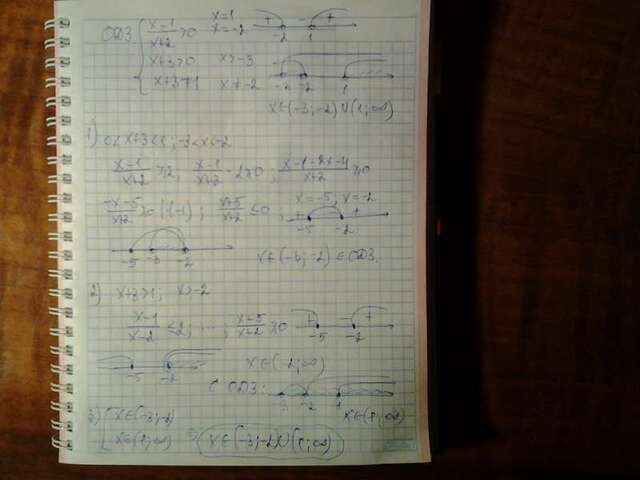 ОДЗ { (x-1)/(x+2) > 0   x=1   x=-2   + - +   -2   1
x+3>0   x>-3
x+3≠1   x≠-2   -3   -2   1
x∈(-3;-2)∪(1;∞)
1) 0<x+3<1; -3<x<-2
(x-1)/(x+2) ≥ 2; (x-1)/(x+2) - 2 ≥ 0; (x-1-2x-4)/(x+2) ≥ 0
(-x-5)/(x+2) ≥ 0 |·(-1); (x+5)/(x+2) ≤ 0; x=-5; x=-2   + - +   -5   -2
-5   -3   -2   x∈(-3;-2) ∈ ОДЗ.
2) x+3>1; x>-2
(x-1)/(x-2) ≤ 2; ...; (x+5)/(x+2) ≥ 0   + - +   -5   -2
-5   -2   x∈(-2;∞)
С ОДЗ:   -3   -2   1   x∈(1;∞)
3) [ x∈(-3;-2)
x∈(1;∞)   x∈(-3;-2)∪(1;∞)